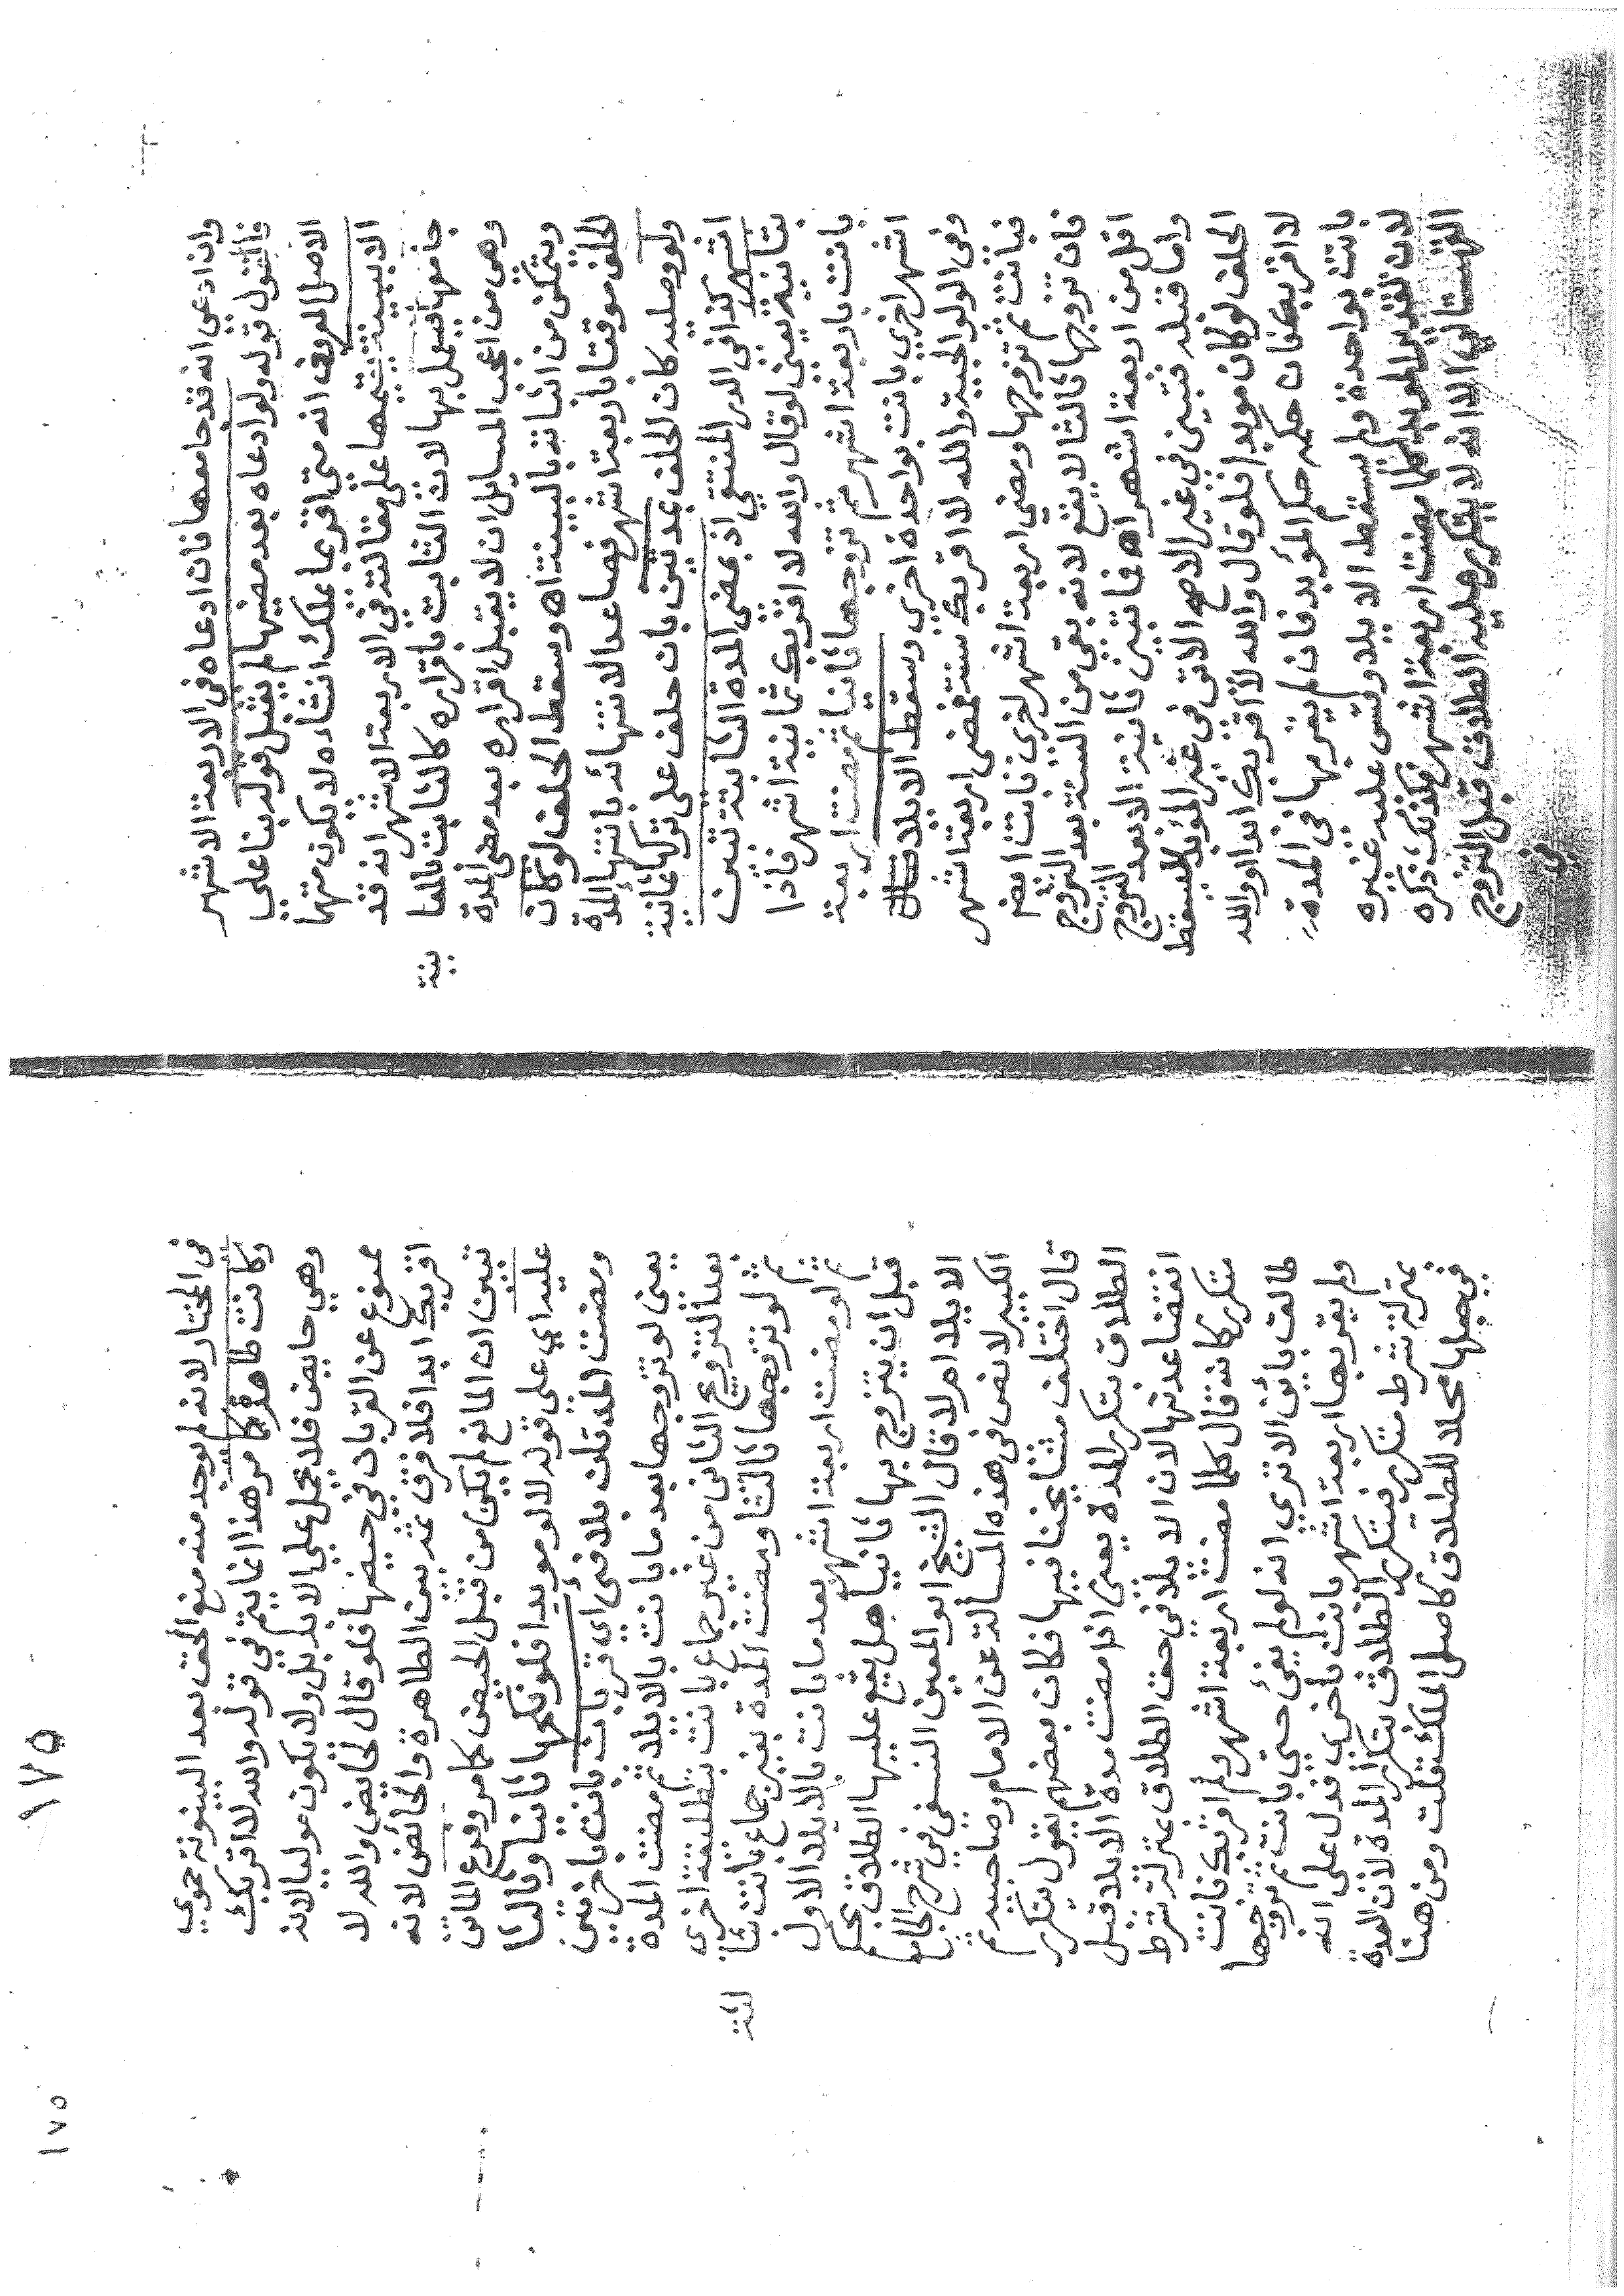 وان ادعى انه قد جامعها فان ادعاه في الاربعة الاشهر
فالقول قوله ولو ادعاه بعد مضيها لم يقبل قوله بنا على
الاصل المعروف انه متى اقر بما يملك انشاءه لا يكون متهما
الا ببينة يقيمها على مقالته في الاربعة الاشهر انه قد
جامعها فيعمل بها لان الثابت باقراره كالثابت بالمعا
ينة
وهي من اعجب المسايل ان لا يقبل اقراره بعد مضي المدة
ويتمكن من اثباته بالبينة اه وسقط الحلف لو كان
الحلف موقتا باربعة اشهر فصاعدا لانتهائه بانتهاء المدة
ولو وصلية كان الحلف بمدتين بان حلف على تركها ثمانية
اشهر كذا في الدر المنتقى اذ بمضي المدة الثانية تبين
بثانية يعني لو قال والله لا اقربك ثمانية اشهر فاذا
بانت باربعة اشهر ثم تزوجها ثانيا ثم مضت اربعة
اشهر اخرى بانت بواحدة اخرى وسقط الايلاء قال
وفي الولوالجية والله لا اقربك سنة فمضى اربعة اشهر
فبانت ثم تزوجها ومضى اربعة اشهر اخرى بانت ايضا
فان تزوجها ثالثا لا يقع لانه بقي من السنة بعد التزوج
اقل من اربعة اشهر اه فما تبين ثانية الا بعد التزوج
واما قبله فتبين في غير الاصح الاتي في غير المؤبد لا يسقط
الحلف لو كان مؤبدا فلو قال والله لا اقربك ابدا او والله
لا اقربك فان حكمه حكم المؤبد فان لم يقربها في المدة
بانت بواحدة ولم يسقط الايلاء وقس عليه غيره
لان تقديره المؤبد كلما مضت اربعة اشهر فكذلك ذكره
القهستاني الا انه لا يتكرر عليه الطلاق قبل التزوج
في
١٧٥
١٧٥
في المختار لانه لم يوجد منه منع الحق بعد البينونة حموي
وكانت طاهرة كما مر هذا انما يتم في قوله والله لا اقربك
وهي حايض فلا يحمل على الايلاء بل ولا يكون موليا لانه
ممنوع عن القربان في حيضها فلو قال لحائض والله لا
اقربك ابدا فلا فرق ثمة بين الطاهرة والحائض لانه
تبين ان المانع لم يكن من قبل الحيض كما مر وفرع الماتن
عليه اي على قوله لا لو مؤبدا فلو نكحها ثانيا وثالثا
ومضت المدتان بلا فئ اي قربان بانت باخريين
يعني لو تزوجها بعد ما بانت بالايلاء ثم مضت المدة
بعد التزوج الثاني من غير جماع بانت بتطليقة اخرى
ثم لو تزوجها ثالثا ومضت المدة بغير جماع بانت ثا
لثة
ثم لو مضت اربعة اشهر بعد ما بانت بالايلاء الاول
قبل ان يتزوج بها ثانيا هل يقع عليها الطلاق بحكم
الايلاء ام لا قال الشيخ ابو المعين النسفي في شرح الجامع
الكبير لا نص في هذه المسألة عن الامام وصاحبيه ثم
قال اختلف مشايخنا فيها فكان بعضهم يقول يتكرر
الطلاق بتكرر المدة يعني اذا مضت مدة الايلاء قبل
انقضاء عدتها لان الايلاء في حق الطلاق بمنزلة شرط
متكرر كانه قال كلما مضت اربعة اشهر ولم اقربك فانت
طالق بائن الا ترى انه لو لم يفئ حتى بانت ثم تزوجها
ولم يقربها اربعة اشهر بانت باخرى فدل على انه
بمنزلة شرط متكرر فيتكرر الطلاق بتكرر المدة لان العدة
في جعلها محلا للطلاق كاصل الملك قلت ومن هنا